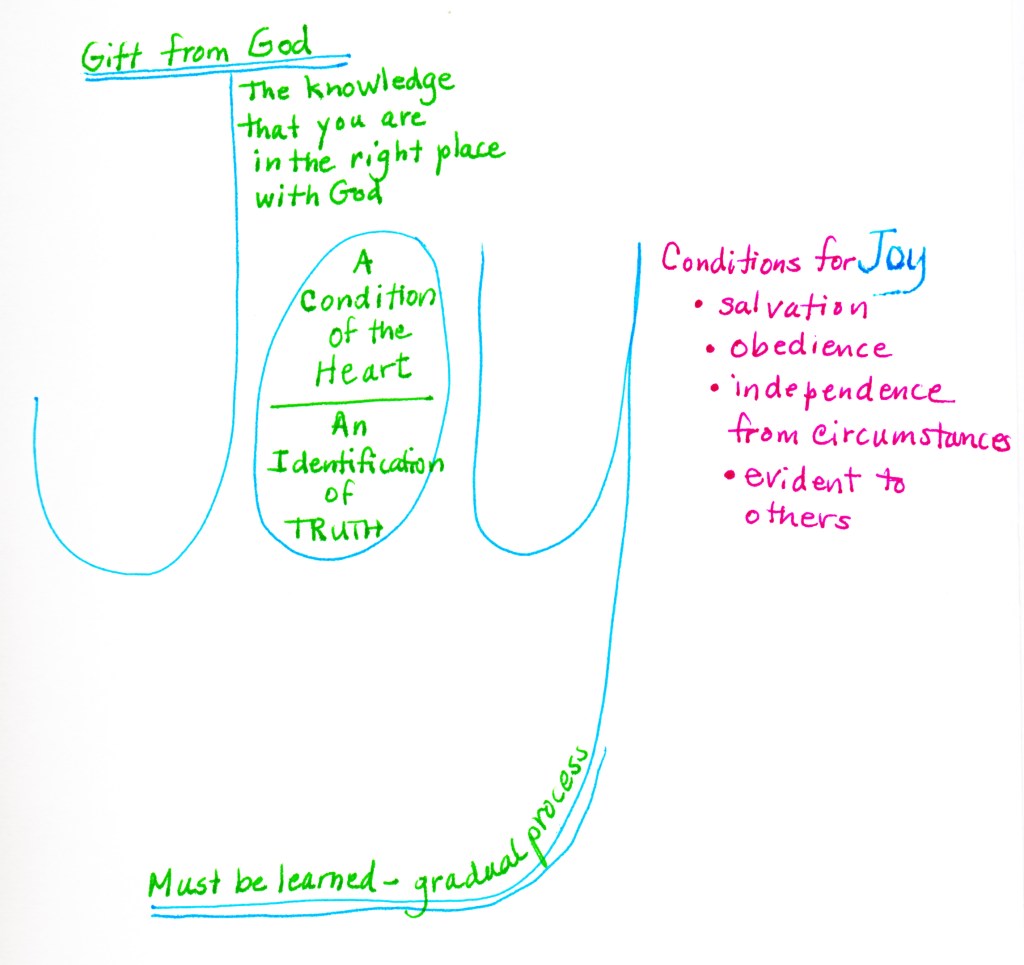 Gift from God
The knowledge
that you are
in the right place
with God
Joy
A
Condition
of the
Heart
An
Identification
of
TRUTH
Conditions for Joy
• salvation
• obedience
• independence
from circumstances
• evident to
others
Must be learned - gradual process